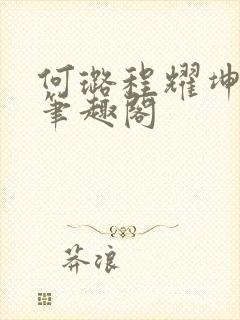 何璐程耀坤
笔趣阁
莽浪